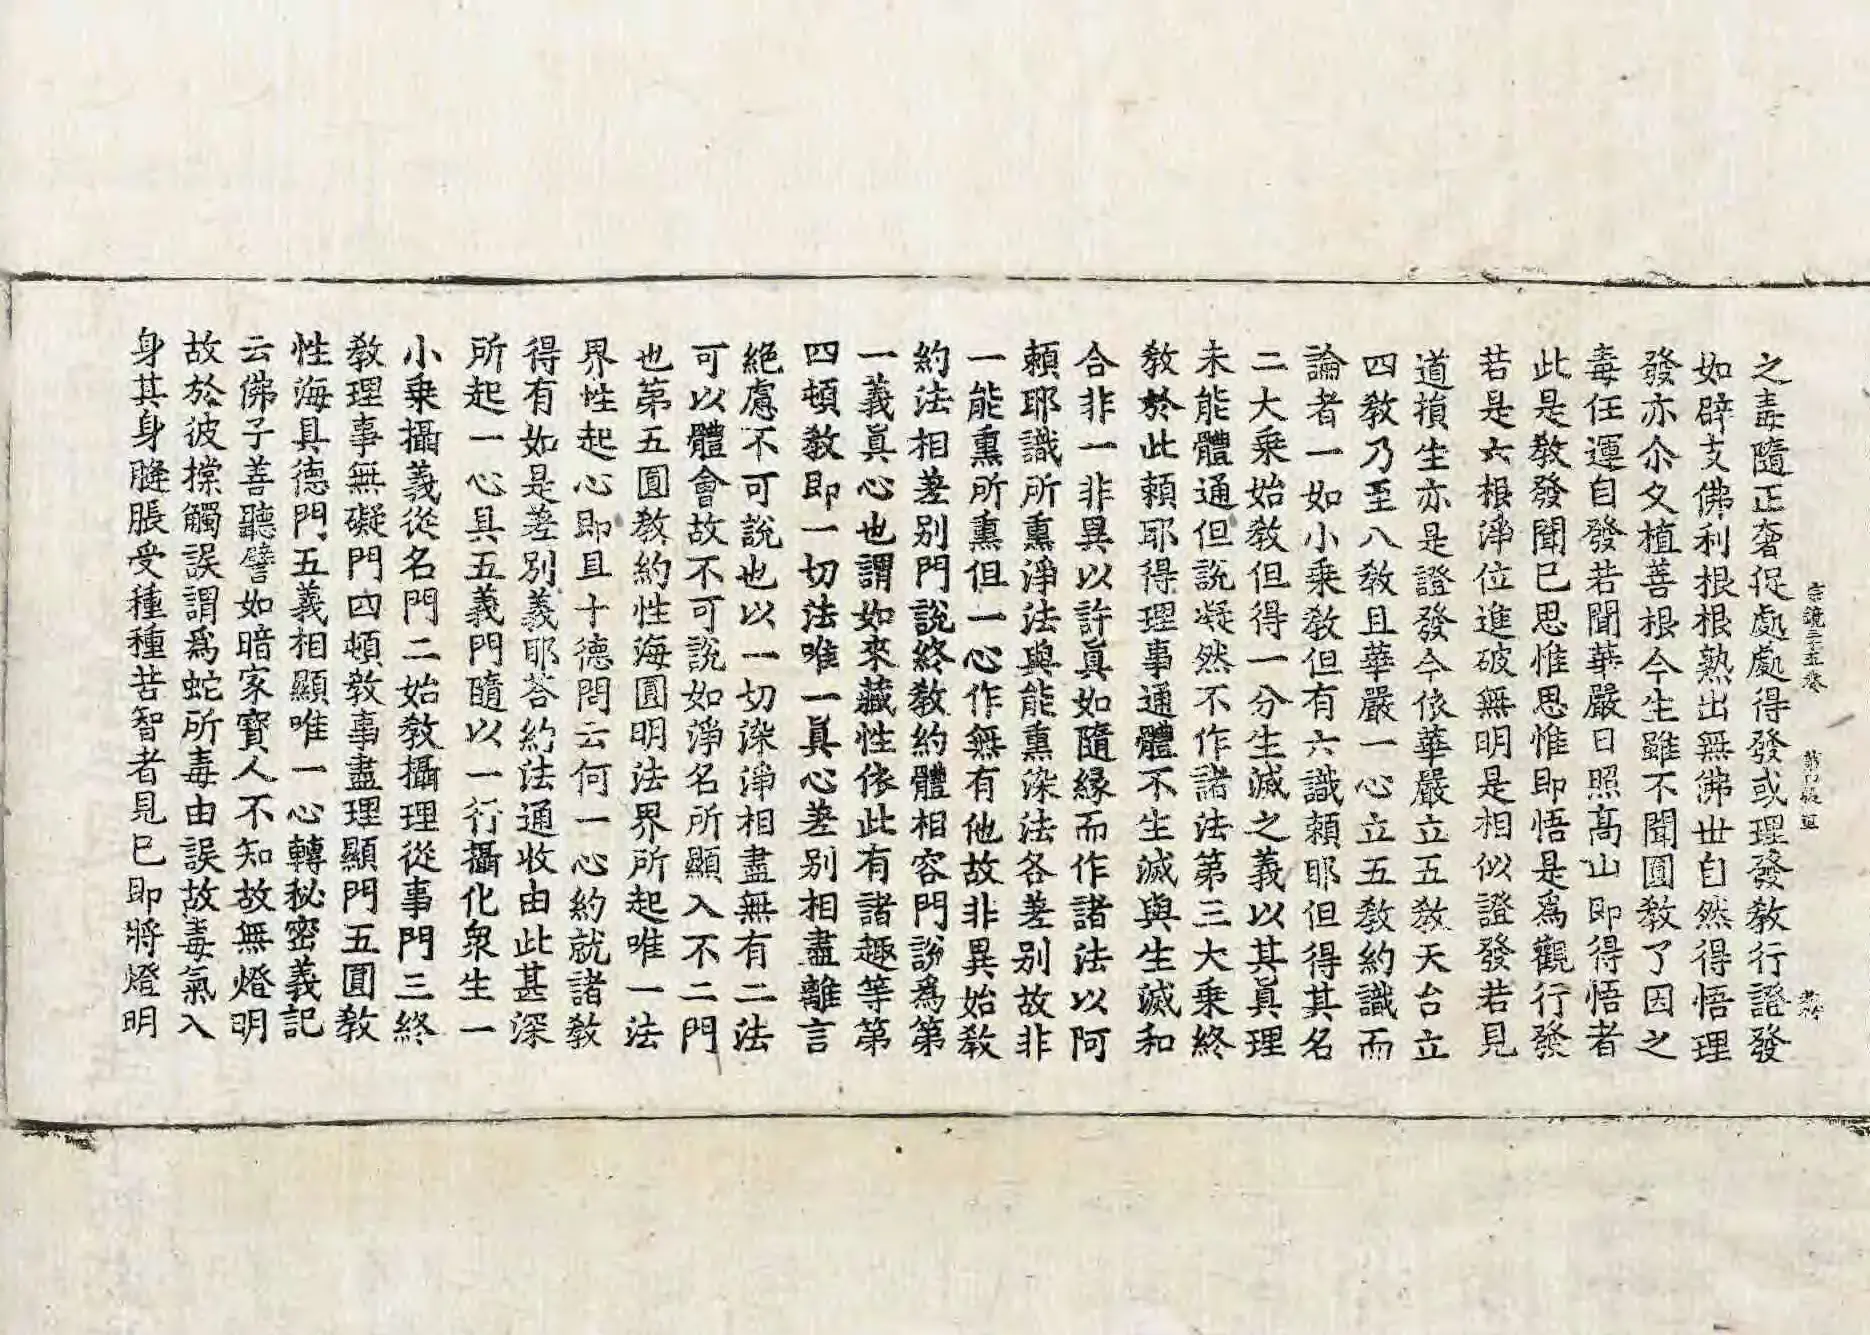 宗鏡三十五卷 第四板 宣
之毒隨正奢促處處得發或理發教行證發
如辟支佛利根根熟出無佛世自然得悟理
發亦尒久植善根今生雖不聞圓教了因之
毒任運自發若聞華嚴日照髙山即得悟者
此是教發聞已思惟思惟即悟是爲觀行發
若是六根淨位進破無明是相似證發若見
道損生亦是證發今依華嚴立五教天台立
四教乃至八教且華嚴一心立五教約識而
論者一如小乘教但有六識賴耶但得其名
二大乘始教但得一分生滅之義以其眞理
未能體通但説凝然不作諸法第三大乘終
教於此賴耶得理事通體不生滅與生滅和
合非一非異以許眞如隨緣而作諸法以阿
賴耶識所熏淨法與能熏染法各差別故非
一能熏所熏但一心作無有他故非異始教
約法相差別門説終教約體相容門説爲第
一義眞心也謂如來藏性依此有諸趣等第
四頓教即一切法唯一眞心差別相盡離言
絕慮不可説也以一切染淨相盡無有二法
可以體會故不可説如淨名所顯入不二門
也第五圓教約性海圓明法界所起唯一法
界性起心即且十德問云何一心約就諸教
得有如是差別義耶荅約法通收由此甚深
所起一心具五義門隨以一行攝化衆生一
小乘攝義從名門二始教攝理從事門三終
教理事無礙門四頓教事盡理顯門五圓教
性海具德門五義相顯唯一心轉秘密義記
云佛子善聽譬如暗家寶人不知故無燈明
故於彼㨍觸誤謂爲蛇所毒由誤故毒氣入
身其身膖脹受種種苦智者見已即將燈明